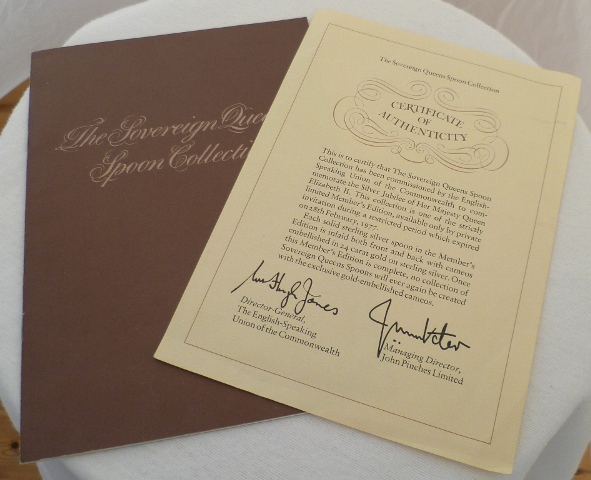 The Sovereign Que
Spoon Collecti
The Sovereign Queens Spoon Collection
CERTIFICATE
OF
AUTHENTICITY
This is to certify that The Sovereign Queens Spoon
Collection has been commissioned by the English-
Speaking Union of the Commonwealth to com-
memorate the Silver Jubilee of Her Majesty Queen
Elizabeth II. This collection is one of the strictly
limited Member's Edition, available only by private
invitation during a restricted period which expired
on 28th February, 1977.
Each solid sterling silver spoon in the Member's
Edition is inlaid both front and back with cameos
embellished in 24 carat gold on sterling silver. Once
this Member's Edition is complete, no collection of
Sovereign Queens Spoons will ever again be created
with the exclusive gold-embellished cameos.
Director-General,
The English-Speaking
Union of the Commonwealth
Managing Director,
John Pinches Limited